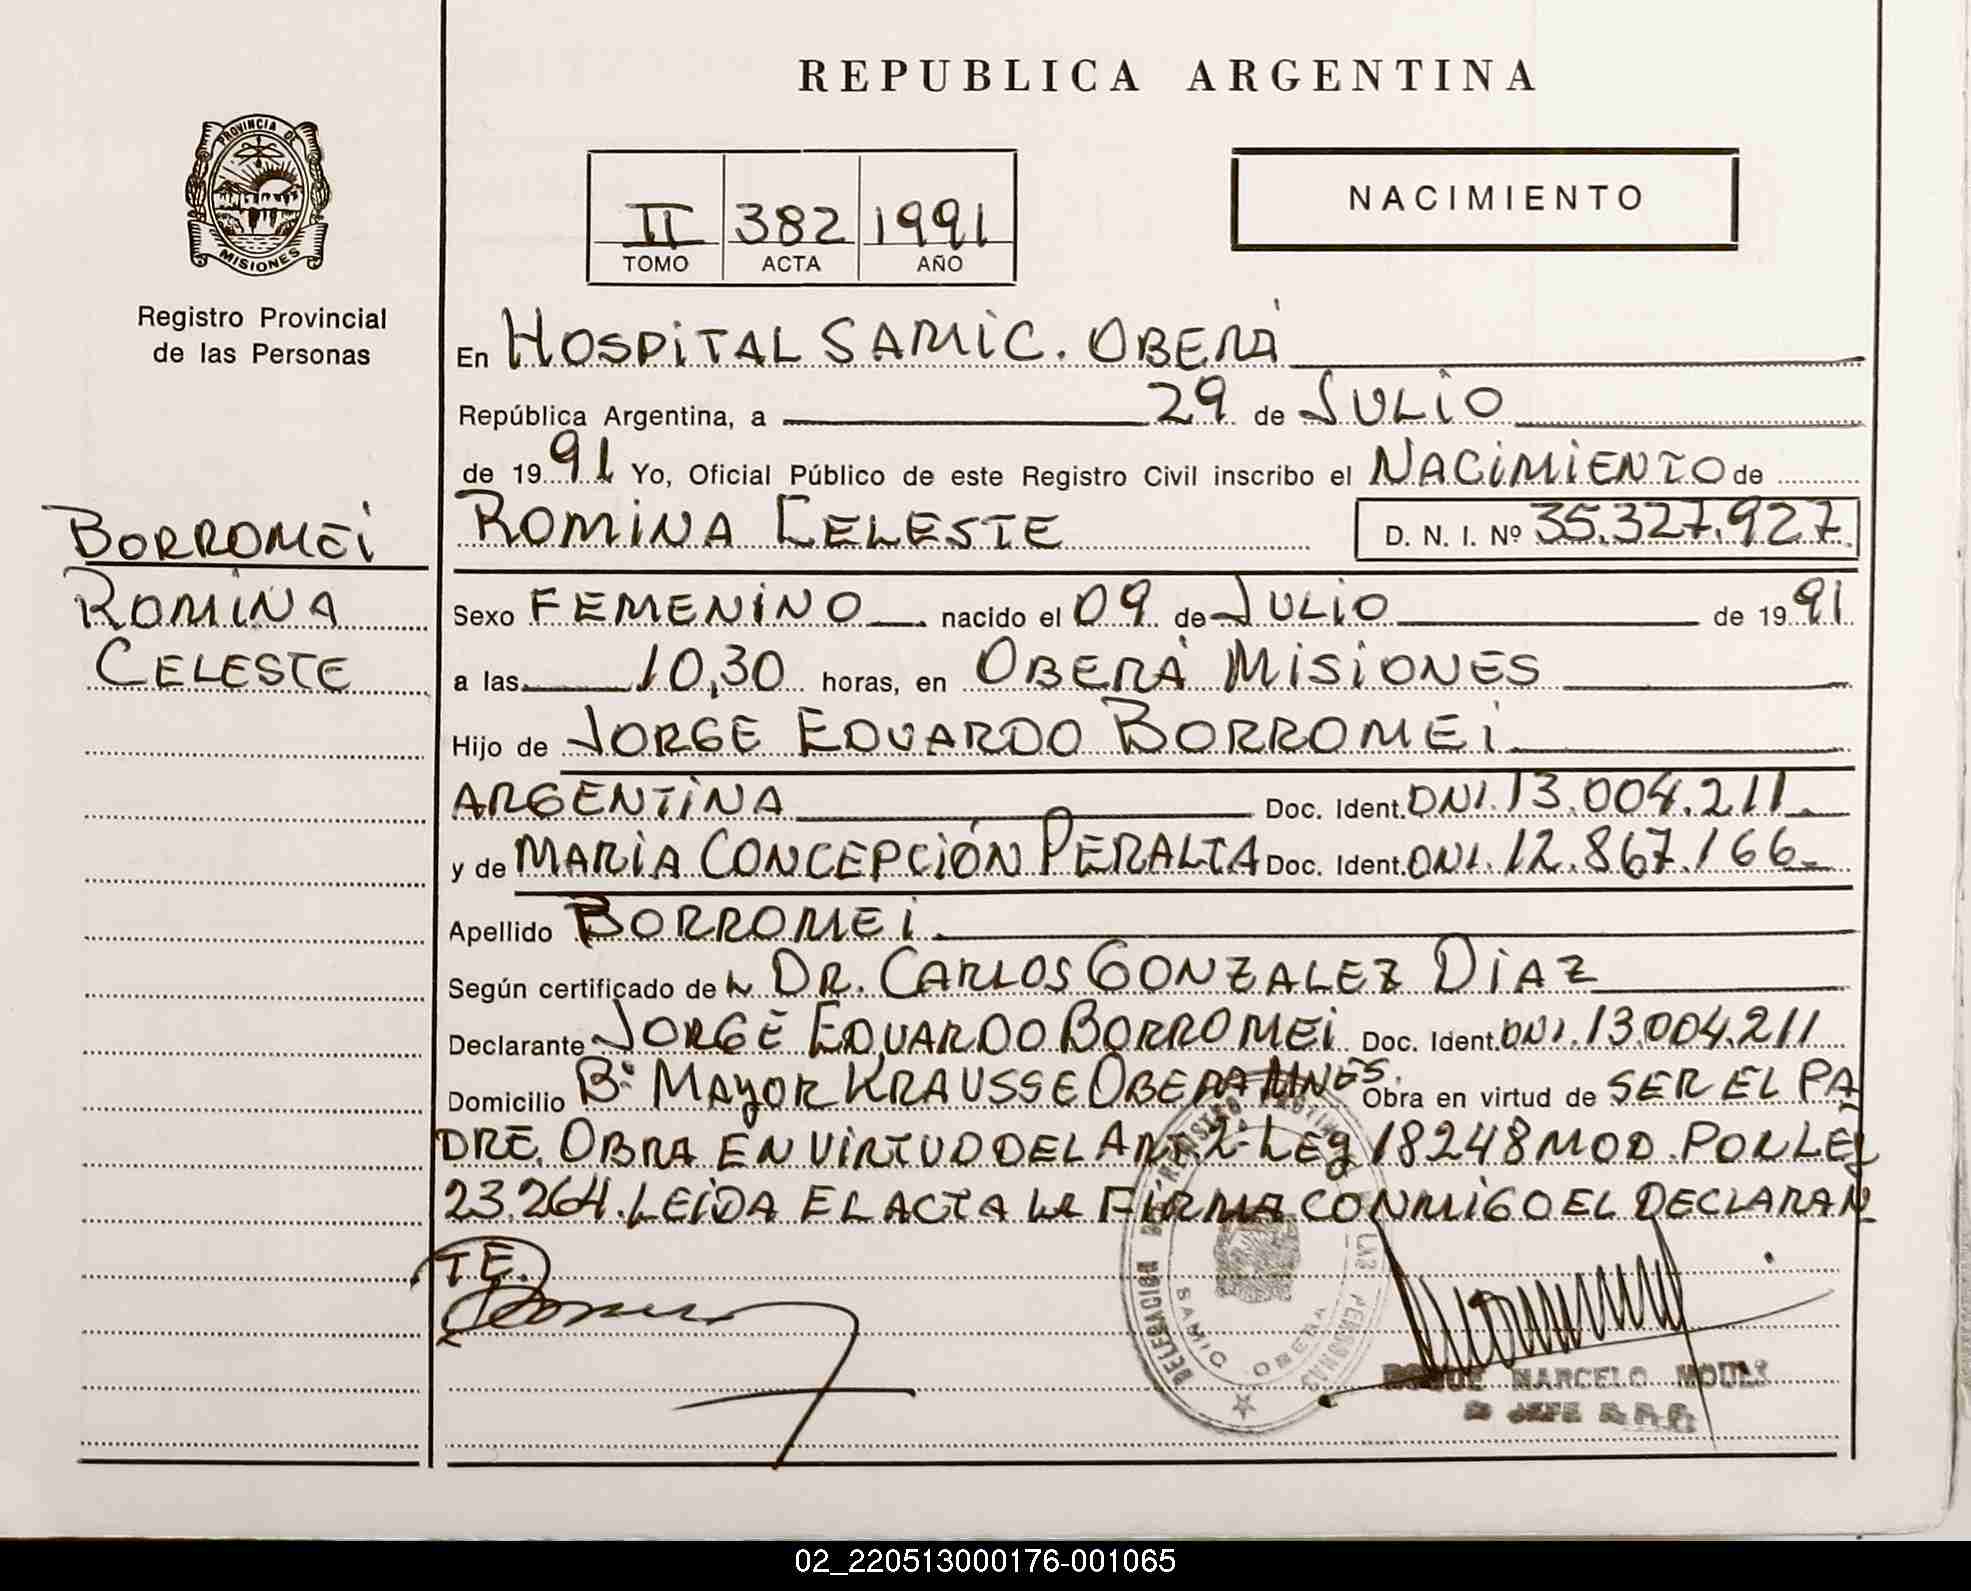 REPUBLICA ARGENTINA
PROVINCIA DE
MISIONES
Registro Provincial
de las Personas
II 382 1991
TOMO ACTA AÑO
NACIMIENTO
BORROMEI
ROMINA
CELESTE
En HOSPITAL SAMIC. OBERÁ
República Argentina, a 29 de JULIO
de 1991 Yo, Oficial Público de este Registro Civil inscribo el NACIMIENTO de
ROMINA CELESTE D. N. I. Nº 35.327.927
Sexo FEMENINO nacido el 09 de JULIO de 1991
a las 10,30 horas, en OBERÁ MISIONES
Hijo de JORGE EDUARDO BORROMEI
ARGENTINA Doc. Ident. DNI. 13.004.211
y de MARIA CONCEPCIÓN PERALTA Doc. Ident. DNI. 12.867.166
Apellido BORROMEI
Según certificado de DR. CARLOS GONZALEZ DIAZ
Declarante JORGE EDUARDO BORROMEI Doc. Ident. DNI. 13.004.211
Domicilio Bº MAYOR KRAUSSE OBERA MNES. Obra en virtud de SER EL PA
DRE. OBRA EN VIRTUD DEL ART. 2º LEY 18248 MOD. POR LEY
23.264. LEIDA EL ACTA LA FIRMA CONMIGO EL DECLARAN
TE.
DELEGACION LAS PERSONAS
SAMIC OBERA
ROQUE MARCELO
JEFE
02_220513000176-001065